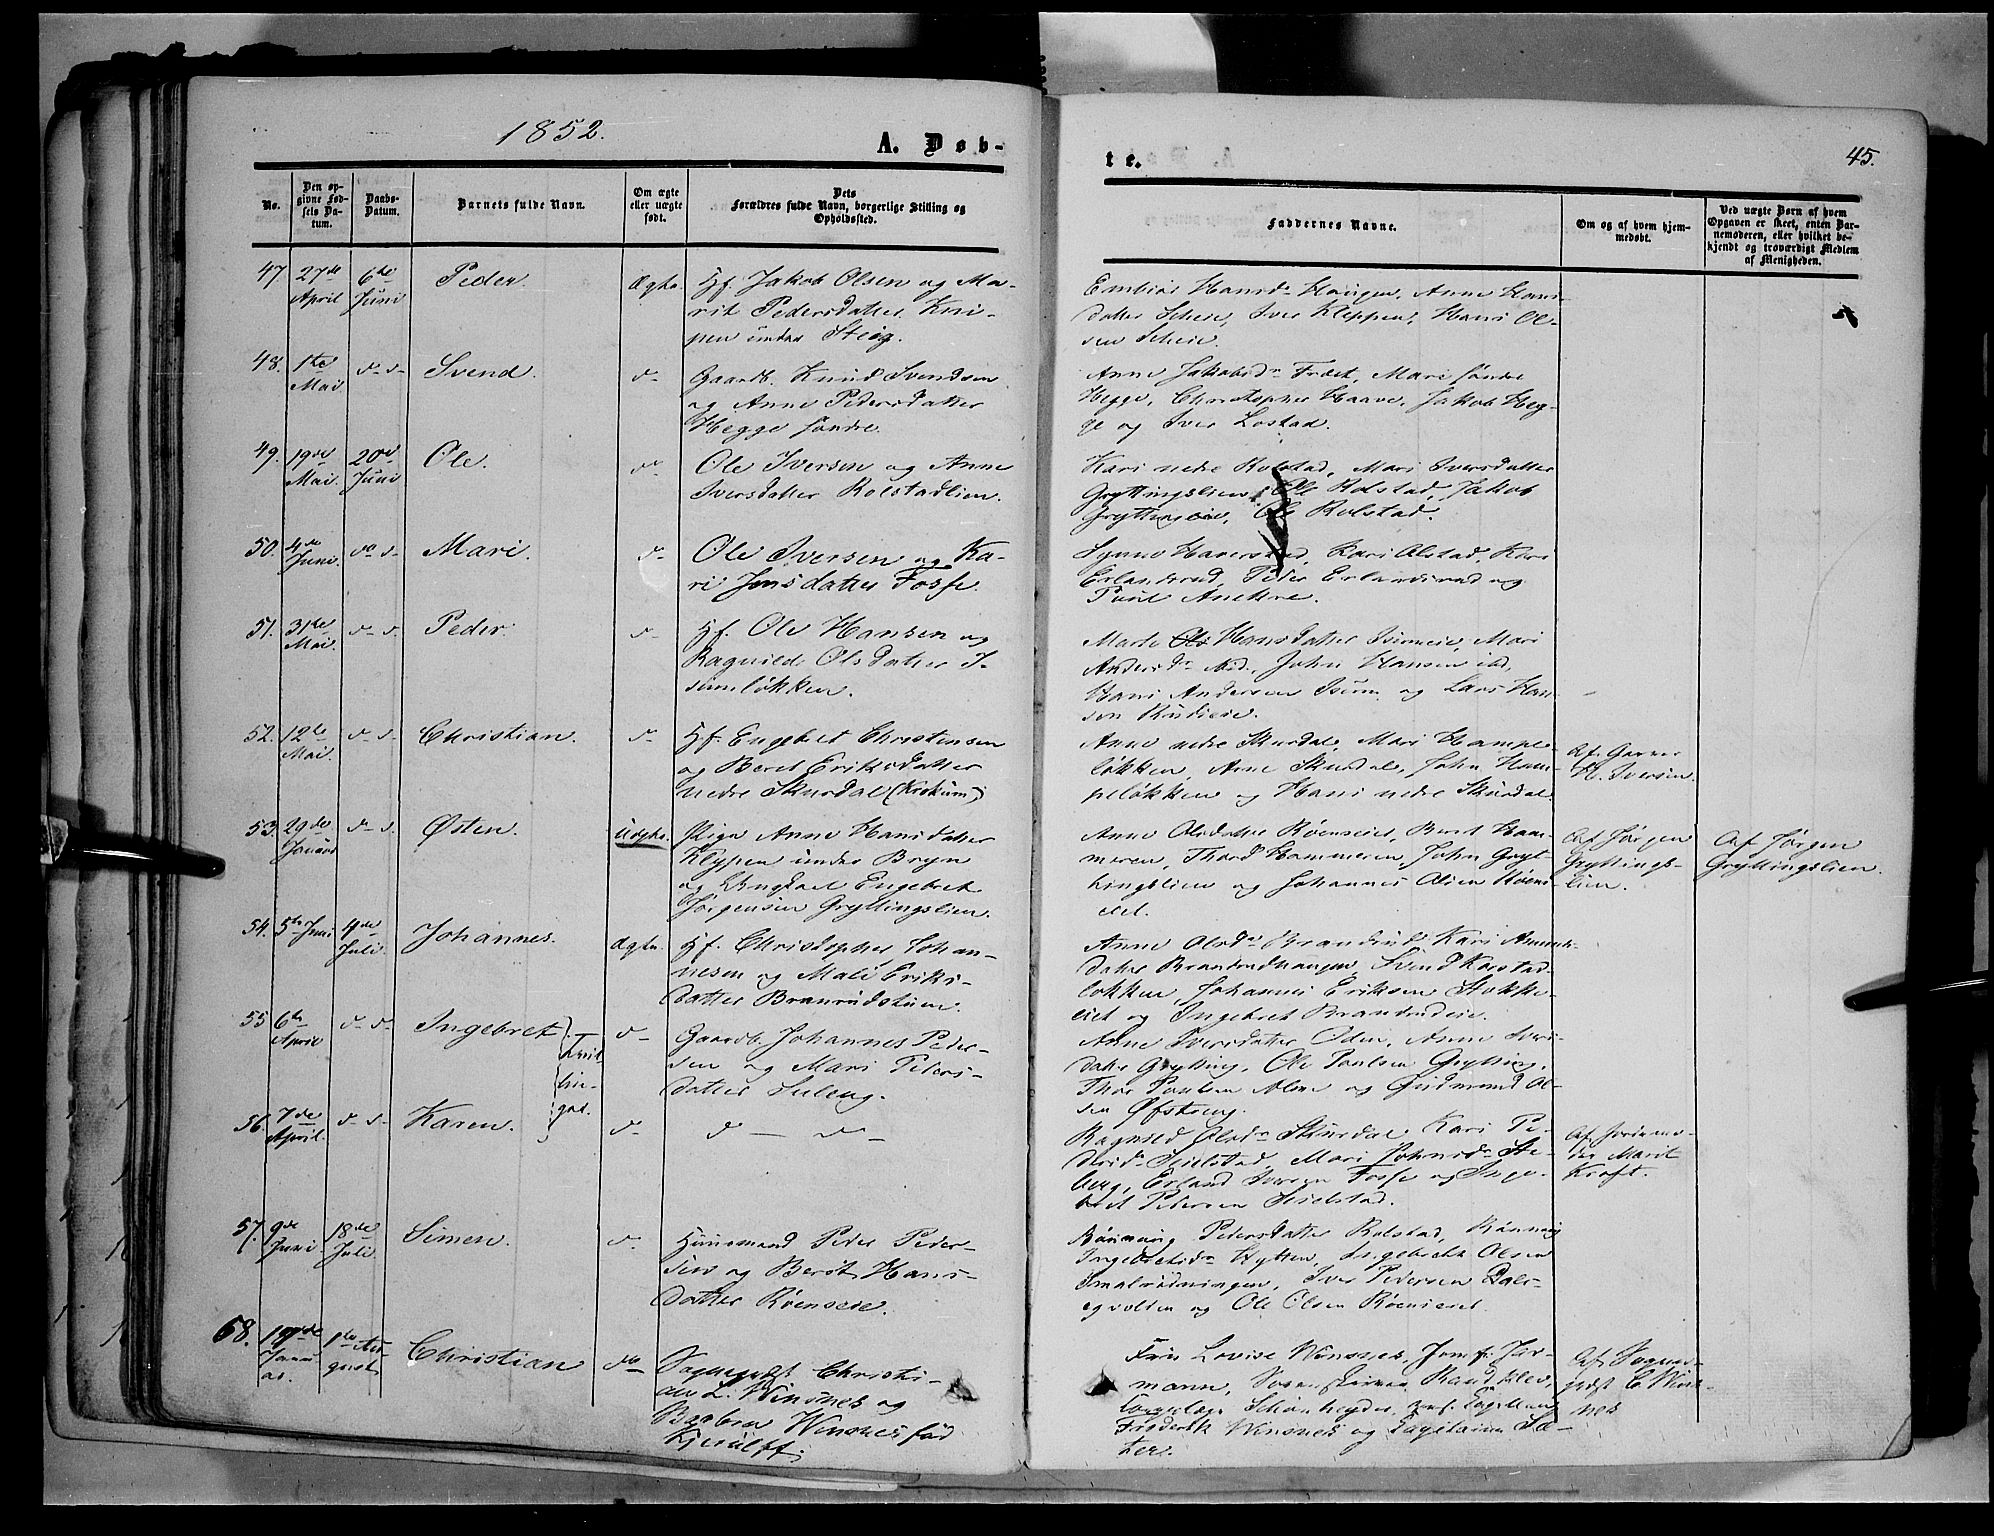 1852.
A. Døb-
te.
45.
No.
Den op-
givne Fød-
sels Da-
tum.
Daabs-
Datum.
Barnets fulde Navn.
Om ægte
eller uægte
født.
Dets
Forældres fulde Navn, borgerlige Stilling og
Opholdssted.
Faddernes Navne.
Om og af hvem hjem-
medøbt.
Ved uægte Børn af hvem
Opgaven er skeet, enten Bar-
nemoderen, eller hvilket be-
kjendt og troværdigt Medlem
af Menigheden.
47
27de
April
6te
Juni
Peder.
Ægte.
Hf. Jakob Olsen og Ma-
rit Pedersdatter Kni-
pen under Steig.
Hansd. Haugen, Anne Hans-
datter Scheie, Iver Kleppen, Hans Ol-
sen Scheie.
48.
1te
Mai
d- d-
Svend.
d-
Gaardb. Knud Svendsen
og Anne Pedersdatter
Hegge søndre.
Anne Jakobsd. Fræet, Mari søndre
Hegge, Christopher Haave, Jakob Heg-
ge og Iver Lostad.
49.
19de
Mai.
20de
Juni
Ole.
do
Ole Iversen og Anne
Iversdatter Rolstadlien.
Kari nedre Rolstad, Mari Iversdatter
Gryttingslien, Ole Rolstad, Jakob
Ole Rolstad.
50.
4de
Juni.
do d-
Mari.
d-
Ole Iversen og Ka-
ri Jensdatter Fosse.
Synne Kari Alstad, Kari
Erlandsrud, Peder Erlandsrud og
Poul
51.
31te
Mai.
d- d.
Peder.
d-
Hf. Ole Hansen og
Ragnild Olsdatter I-
sumløkken.
Marte Ols Hansdatter Isumeie, Mari
Andersd. ibid., John Hansen ibd,
Hans Andersen Isum og Lars Han-
sen Rudieie.
52.
12te
Mai.
d- d.
Christian.
d-
Hf. Engebret Christensen
og Beret Eriksdatter
nedre Skurdal (Krekum)
Anne nedre Skurdal, Mari Hampe-
løkken, Arne Skurdal, John Ham-
peløkken og Hans nedre Skurdal.
Af
H. Iversen.
53.
29de
Januar
d- d.
Østen.
Uægte.
Pige Anne Hansdatter
Klypen under Bryn
og Ungkarl Engebret
Jørgensen Gryttingslien.
Anne Olsdatter Røenseiet, Berit Ham-
meren, Thord Hammeren, John Gryt-
tingslien og Johannes Olsen Røens-
eiet.
Af Jørgen
Gryttings-
lien.
Af Jørgen
Gryttingslien.
54.
5te Juni
4de
Juli.
Johannes.
Ægte.
Hf. Christopher Johan-
nesen og Mali Eriks-
datter Branrudstuen.
Anne Olsd. Brandrud Kari Amund-
datter Brandrudhaugen, Svend Korstad-
løkken, Johannes Eriksen Stokke-
eiet og Ingebret Brandrudeie.
55
6te
April
d- d-
Ingebret
Tvil-
lin-
ger.
d-
Gaardb. Johannes Peder-
sen og Mari Peders-
datter Suleng.
Anne Iversdatter Oden, Anne Ivers-
datter Grytting, Ole Poulsen Grytting,
Thor Poulsen Alme og Gudmund Ol-
sen Øfsteng.
56.
7de
April.
d- d-
Karen.
d-
d- d-
Ragnild Olsd. Skurdal Kari Pe-
dersd. Seielstad, Mari Johnsd. Ste-
berg, Erland Iversen Fosse og Inge-
bret Pedersen Seielstad.
Af Jordemo-
der Marit
Kroft.
57.
9de
Juni
18de
Juli.
Simen.
d.
Huusmand Peder Peder-
sen og Berit Hans-
datter Røenseie.
Rønnaug Pedersdatter Rolstad, Rønnaug
Ingebretsd. Hytten, Ingebrekt Olsen
Iver Pedersen
og Ole Olsen Røenseiet.
58.
Janu-
ar.
1te Au-
gust.
Christian
do
Sogneprest Christi-
an L. Winsnes og
Barbra Winsnes fød
Kjerulff.
Frue Lovise Winsnes, Jomf. Har-
mann, Randklev,
Schønheyder,
Frederik Winsnes og Sæ-
ter.
Af Sogne-
prest C. Wins-
nes